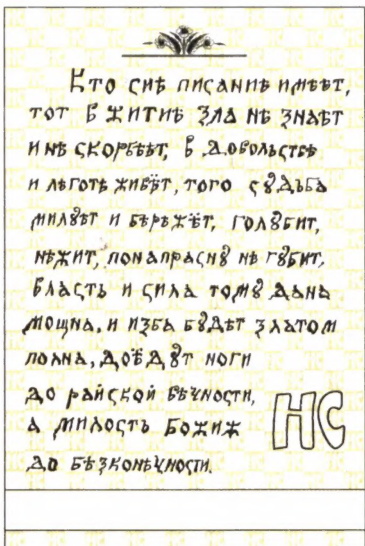 Кто сиѣ писаниѣ имѣѣт,
тот в житиѣ зла нѣ знаѣт
и нѣ скорбѣѣт, в довольствѣ
и лѣготѣ живѣт, того сꙋдьба
милꙋѣт и бѣрѣжѣт, голꙋбит,
нѣжит, понапраснꙋ нѣ гꙋбит,
власть и сила томꙋ дана
мощна, и изба бꙋдѣт златом
полна, доѣдꙋт ноги
до райской вѣчности,
а милость Божиж
до бѣзконѣчности.
НС